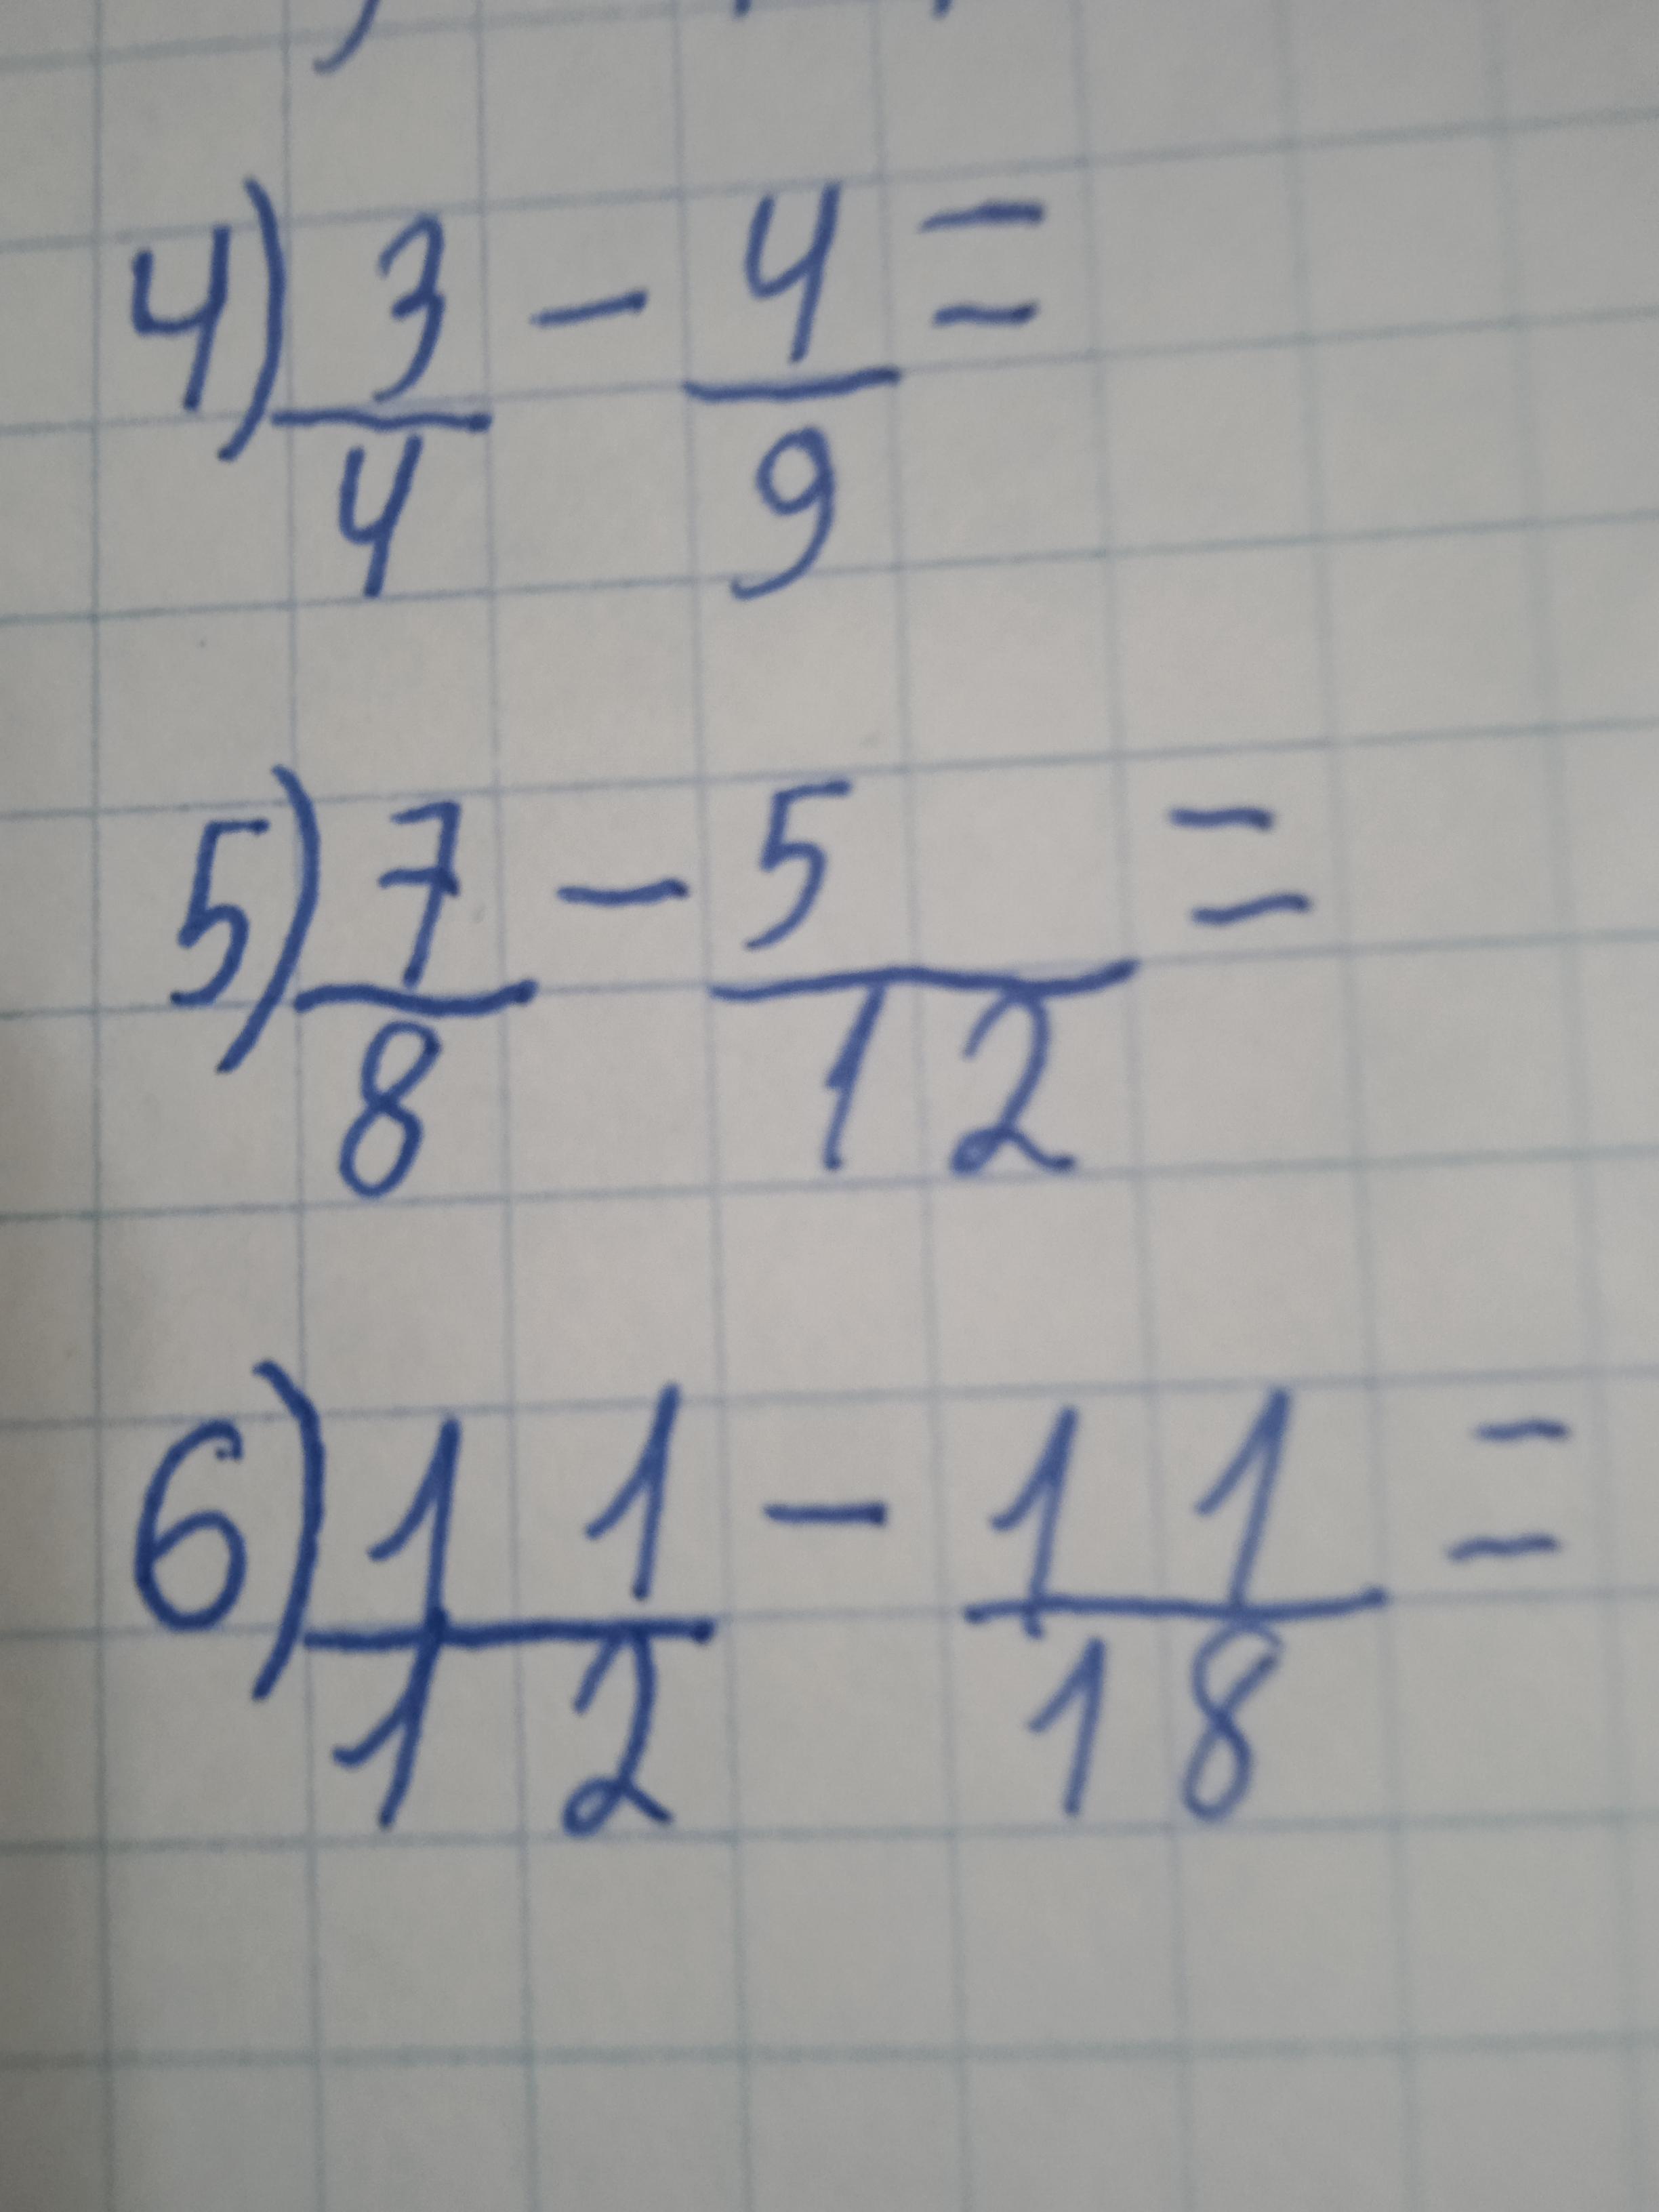 4) 3/4 - 4/9 =
5) 7/8 - 5/12 =
6) 11/12 - 11/18 =